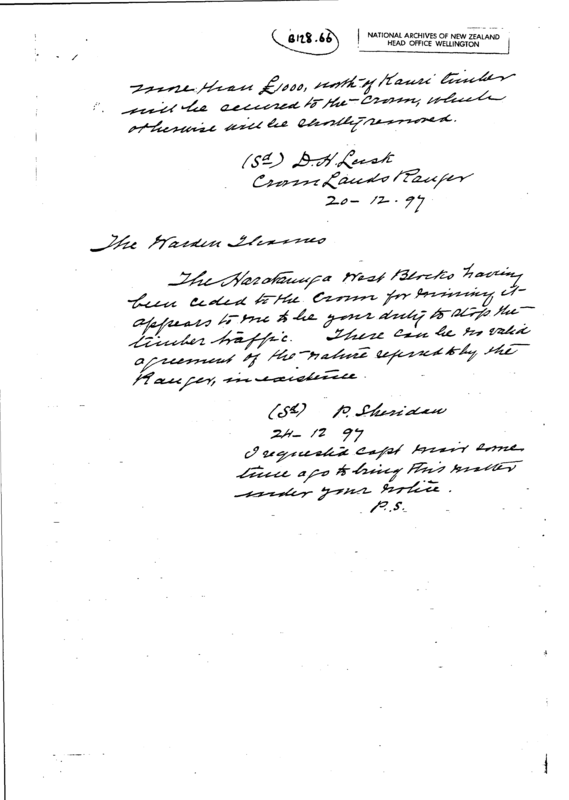 B128.66
NATIONAL ARCHIVES OF NEW ZEALAND
HEAD OFFICE WELLINGTON
more than £1000, worth of Kauri timber
will be secured to the Crown, which
otherwise will be shortly removed.
(Sd) D. H. Lusk
Crown Lands Ranger
20-12-97
The Warden Thames
The Harataunga West Blocks having
been ceded to the Crown for mining it
appears to me to be your duty to stop the
timber traffic. There can be no valid
agreement of the nature referred to by the
Ranger, in existence.
(Sd) P. Sheridan
24-12 97
I requested Capt Mair some
time ago to bring this matter
under your notice.
P.S.